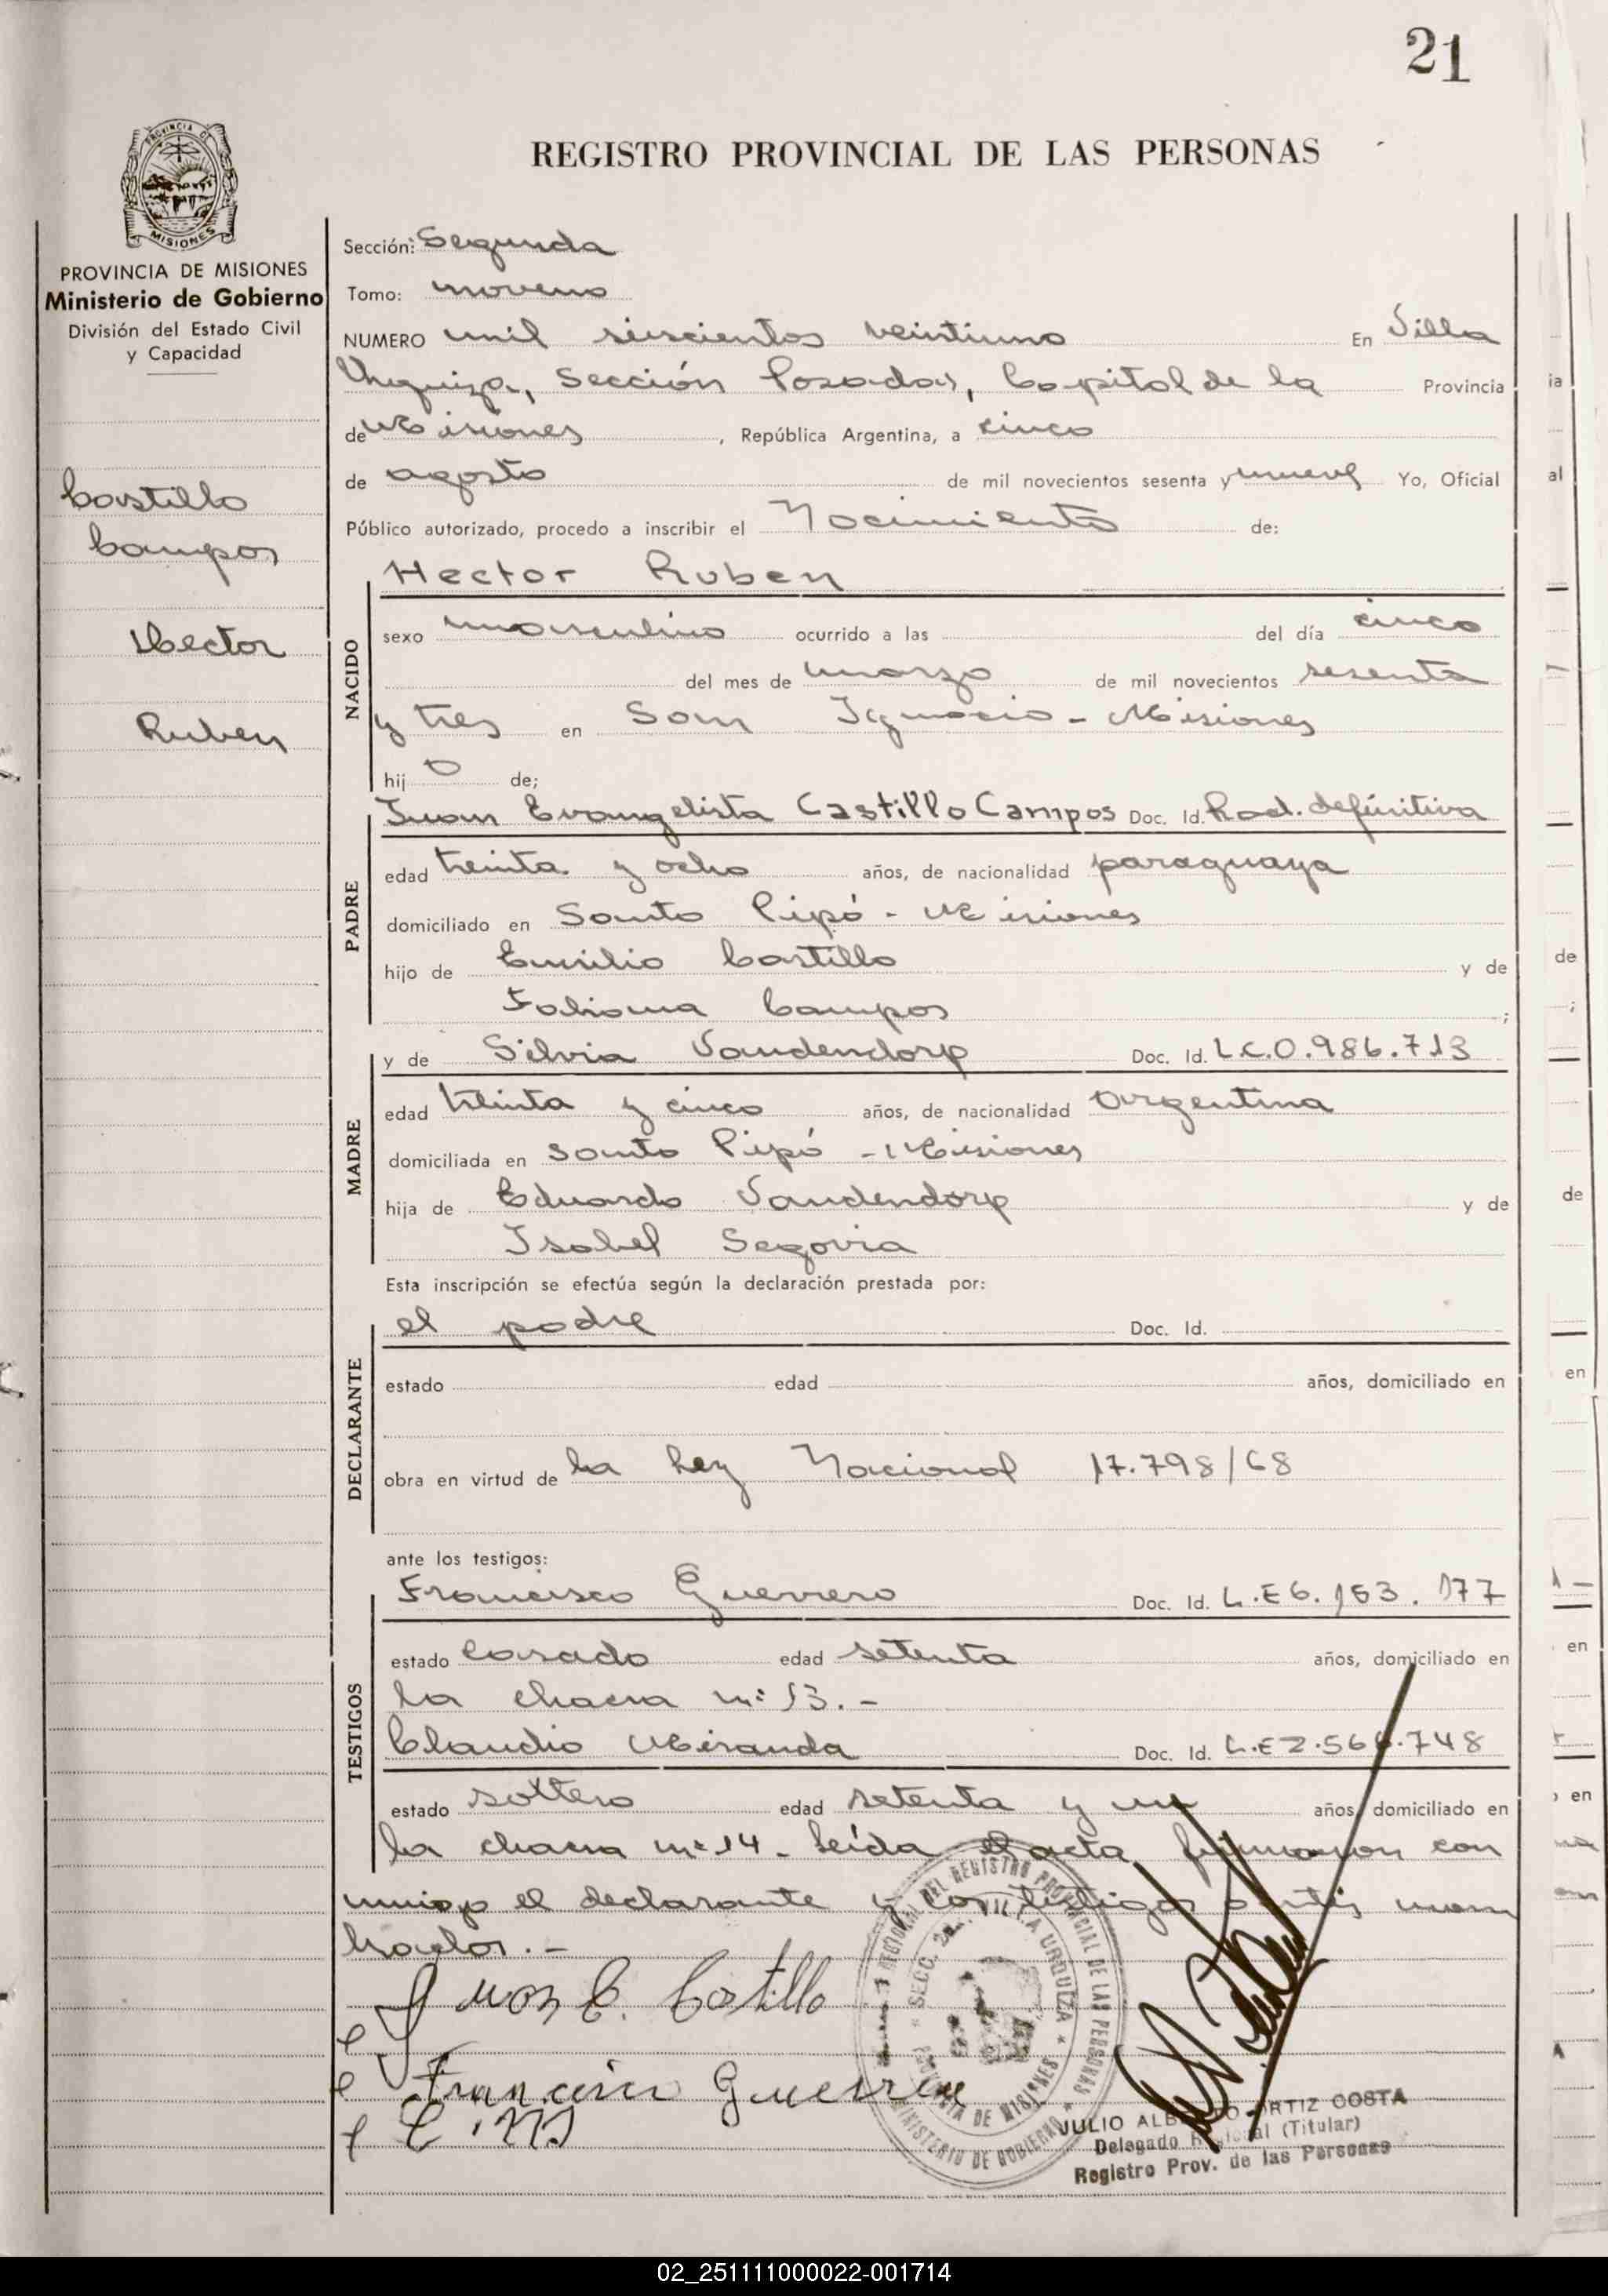 21
REGISTRO PROVINCIAL DE LAS PERSONAS
MISIONES
PROVINCIA DE MISIONES
Ministerio de Gobierno
División del Estado Civil
y Capacidad
Castillo
Campos
Hector
Ruben
Sección: Segunda
Tomo: noveno
NUMERO mil seiscientos veintiuno En Villa
Urquiza, Sección Posadas, Capital de la Provincia
de Misiones, República Argentina, a cinco
de agosto de mil novecientos sesenta y nueve Yo, Oficial
Público autorizado, procedo a inscribir el Nacimiento de:
Hector Ruben
NACIDO
sexo masculino ocurrido a las del día cinco
del mes de marzo de mil novecientos sesenta
y tres en San Ignacio - Misiones
hij o de;
PADRE
Juan Evangelista Castillo Campos Doc. Id. Rad. definitiva
edad treinta y ocho años, de nacionalidad paraguaya
domiciliado en Santo Pipó - Misiones
hijo de Emilio Castillo y de
Fabiana Campos ;
MADRE
y de Silvia Vandendorp Doc. Id. L.C.0.986.713
edad treinta y cinco años, de nacionalidad argentina
domiciliada en Santo Pipó - Misiones
hija de Eduardo Vandendorp y de
Isabel Segovia
Esta inscripción se efectúa según la declaración prestada por:
DECLARANTE
el padre Doc. Id.
estado edad años, domiciliado en
obra en virtud de la Ley Nacional 17.798/68
ante los testigos:
TESTIGOS
Francisco Guerrero Doc. Id. L.E 6.153.177
estado casado edad setenta años, domiciliado en
la chacra nº 13.-
Claudio Miranda Doc. Id. L.E 2.566.748
estado soltero edad setenta y un años, domiciliado en
la chacra nº 14 - Leída el acta, firmaron con
migo el declarante y los testigos antes nom
brados.-
Juan E. Castillo
Francisco Guerrero
C. M
REGIONAL DEL REGISTRO PROVINCIAL DE LAS PERSONAS
SECC. 2a. VILLA URQUIZA
PROVINCIA DE MISIONES
MINISTERIO DE GOBIERNO
JULIO ALBERTO ORTIZ COSTA
Delegado Regional (Titular)
Registro Prov. de las Personas
ia
al
de
;
de
en
en
en
02_251111000022-001714